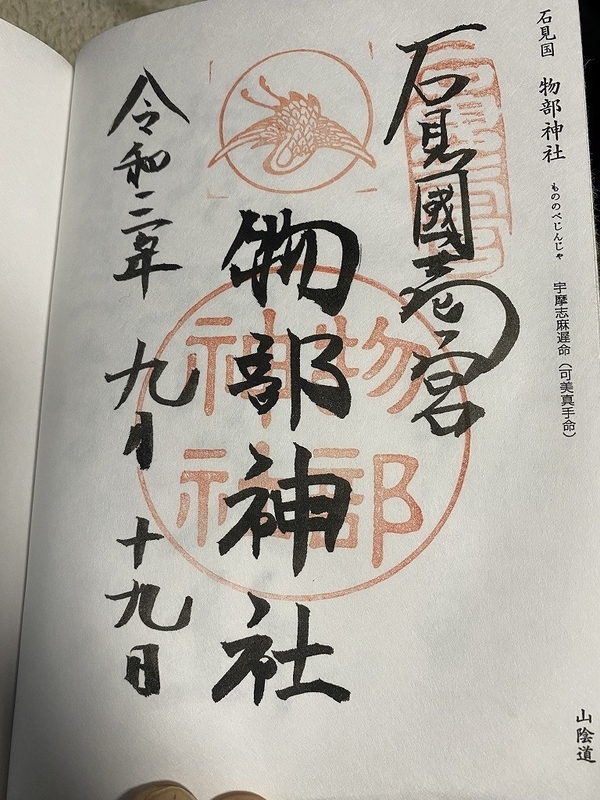 石見国 物部神社 もののべじんじゃ 宇摩志麻遅命(可美真手命)
山陰道
石見國壱の宮
物部神社
物部
神社
令和二年 九月 十九日